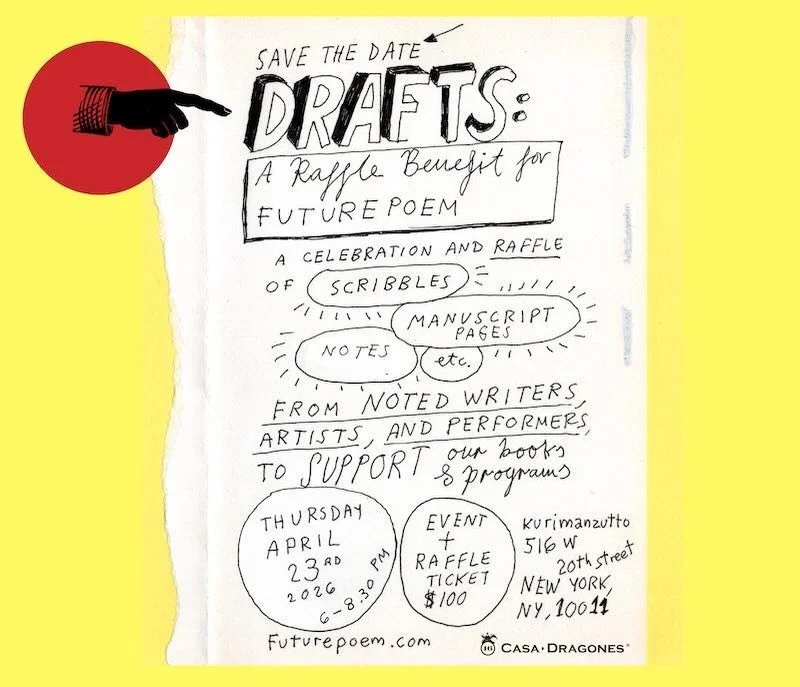 SAVE THE DATE
DRAFTS:
A Raffle Benefit for
FUTUREPOEM
A CELEBRATION AND RAFFLE
OF SCRIBBLES
MANUSCRIPT
PAGES
NOTES
etc.
FROM NOTED WRITERS,
ARTISTS, AND PERFORMERS,
TO SUPPORT our books
& programs
THURSDAY
APRIL
23RD
2026
6-8.30 PM
EVENT
+
RAFFLE
TICKET
$100
kurimanzutto
516 W
20th street
NEW YORK,
NY, 10011
Futurepoem.com
CASA·DRAGONES®